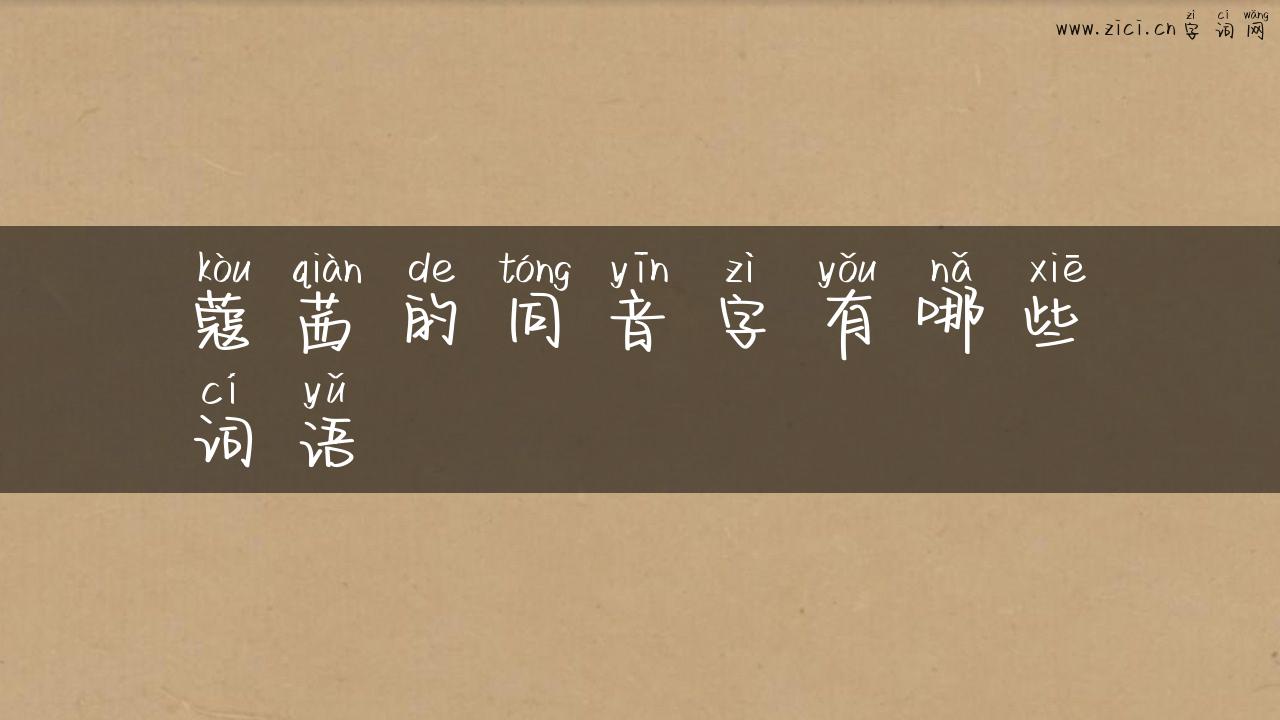 zì cí wǎng
www.zici.cn 字词网
kòu qiàn de tóng yīn zì yǒu nǎ xiē
蔻茜的同音字有哪些
cí yǔ
词语